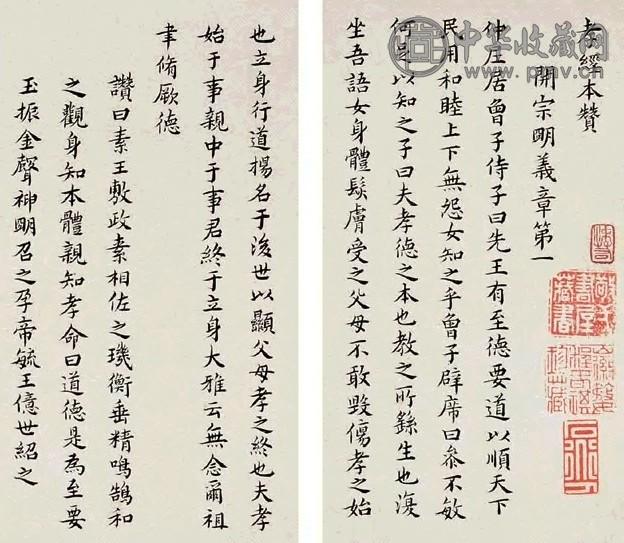 孝經本贊
開宗明義章第一
仲尼居曾子侍子曰先王有至德要道以順天下
民用和睦上下無怨女知之乎曾子辟席曰參不敏
何足以知之子曰夫孝德之本也教之所繇生也復
坐吾語女身體髮膚受之父母不敢毀傷孝之始
也立身行道揚名于後世以顯父母孝之終也夫孝
始于事親中于事君終于立身大雅云無念爾祖
聿脩厥德
讚曰素王敷政素相佐之璣衡垂精鳴鵠和
之觀身知本體親知孝命曰道德是為至要
玉振金聲神明召之孕帝毓王億世紹之
中华收藏网